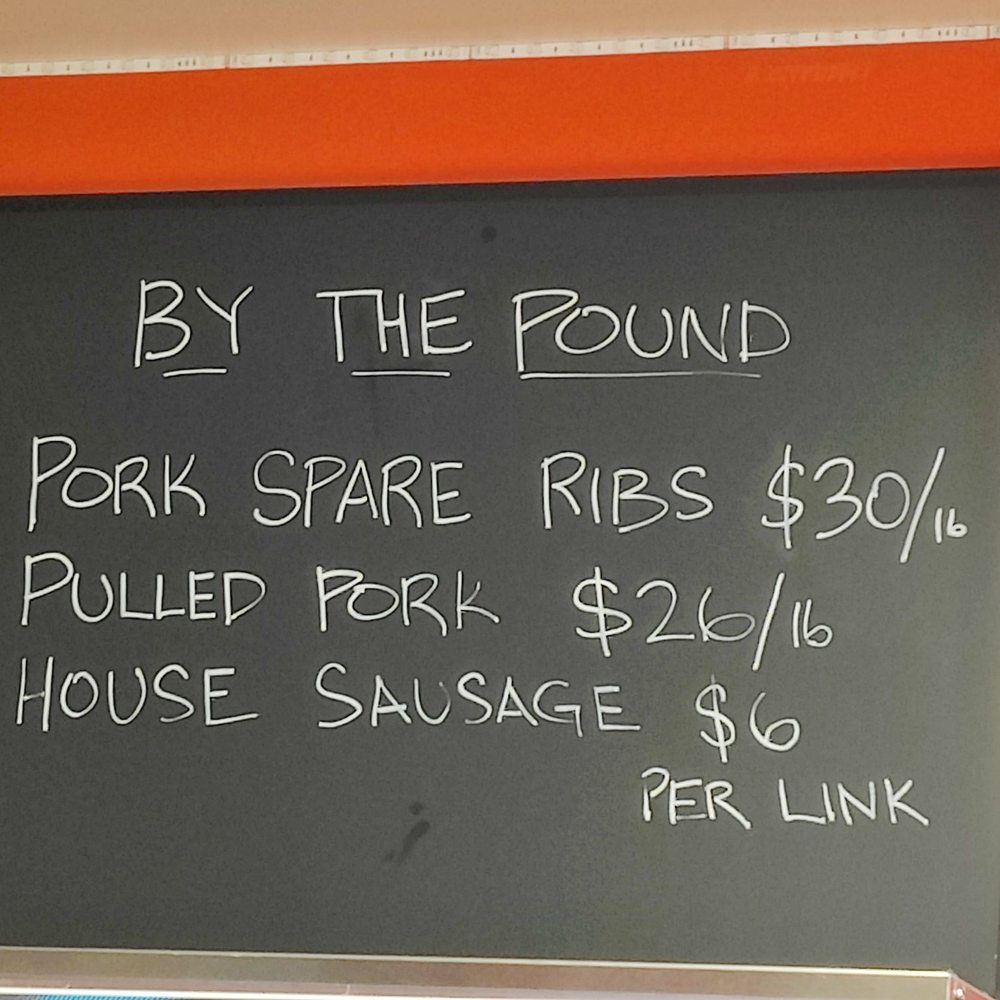 BY THE POUND
PORK SPARE RIBS $30/lb
PULLED PORK $26/lb
HOUSE SAUSAGE $6
PER LINK